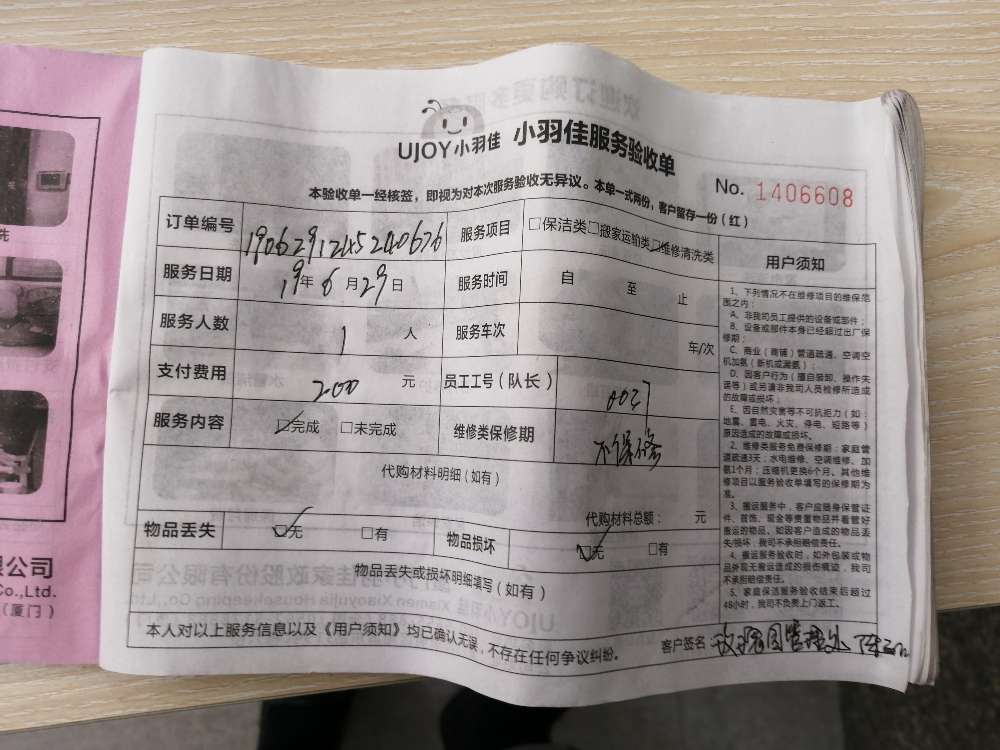 UJOY小羽佳 小羽佳服务验收单
No. 1406608
本验收单一经核签，即视为对本次服务验收无异议。本单一式两份，客户留存一份（红）
订单编号 19062912452040676 服务项目 □保洁类□搬家运输类☑维修清洗类
服务日期 19年6月29日 服务时间 自 至 止
服务人数 1 人 服务车次 车/次
支付费用 200 元 员工工号（队长） 0027
服务内容 ☑完成 □未完成 维修类保修期 不保修
代购材料明细（如有）
代购材料总额： 元
物品丢失 ☑无 □有 物品损坏 ☑无 □有
物品丢失或损坏明细填写（如有）
本人对以上服务信息以及《用户须知》均已确认无误，不存在任何争议纠纷。
客户签名：
用户须知
1、下列情况不在维修项目的维保范
围之内：
A、非我司员工提供的设备或部件；
B、设备或部件本身已经超过出厂保
修期；
C、商业（商铺）管道疏通、空调空
机加氨（新机或漏氨）；
D、因客户行为（擅自装卸、操作失
误等）或另请非我司人员检修所造成
的故障或损坏；
E、因自然灾害等不可抗拒力（如：
地震、雷电、火灾、停电、短路等）
原因造成的故障或损坏。
2、维修类服务免费保修期：家庭管
道疏通3天；水电维修、空调维修、加
氨1个月；压缩机更换6个月。其他维
修项目以服务验收单填写的保修期为
准。
3、搬运服务中，客户应随身保管证
件、首饰、现金等贵重物品并看管好
搬运的物品。如因客户造成的物品丢
失/损坏，我司不承担赔偿责任。
4、搬运服务验收时，如外包装或物
品外观无搬运造成的损伤痕迹，我司
不承担赔偿责任。
5、家庭保洁服务结束后超过
48小时，我司不负责上门返工。
先
限公司
Co.,Ltd.
（厦门）